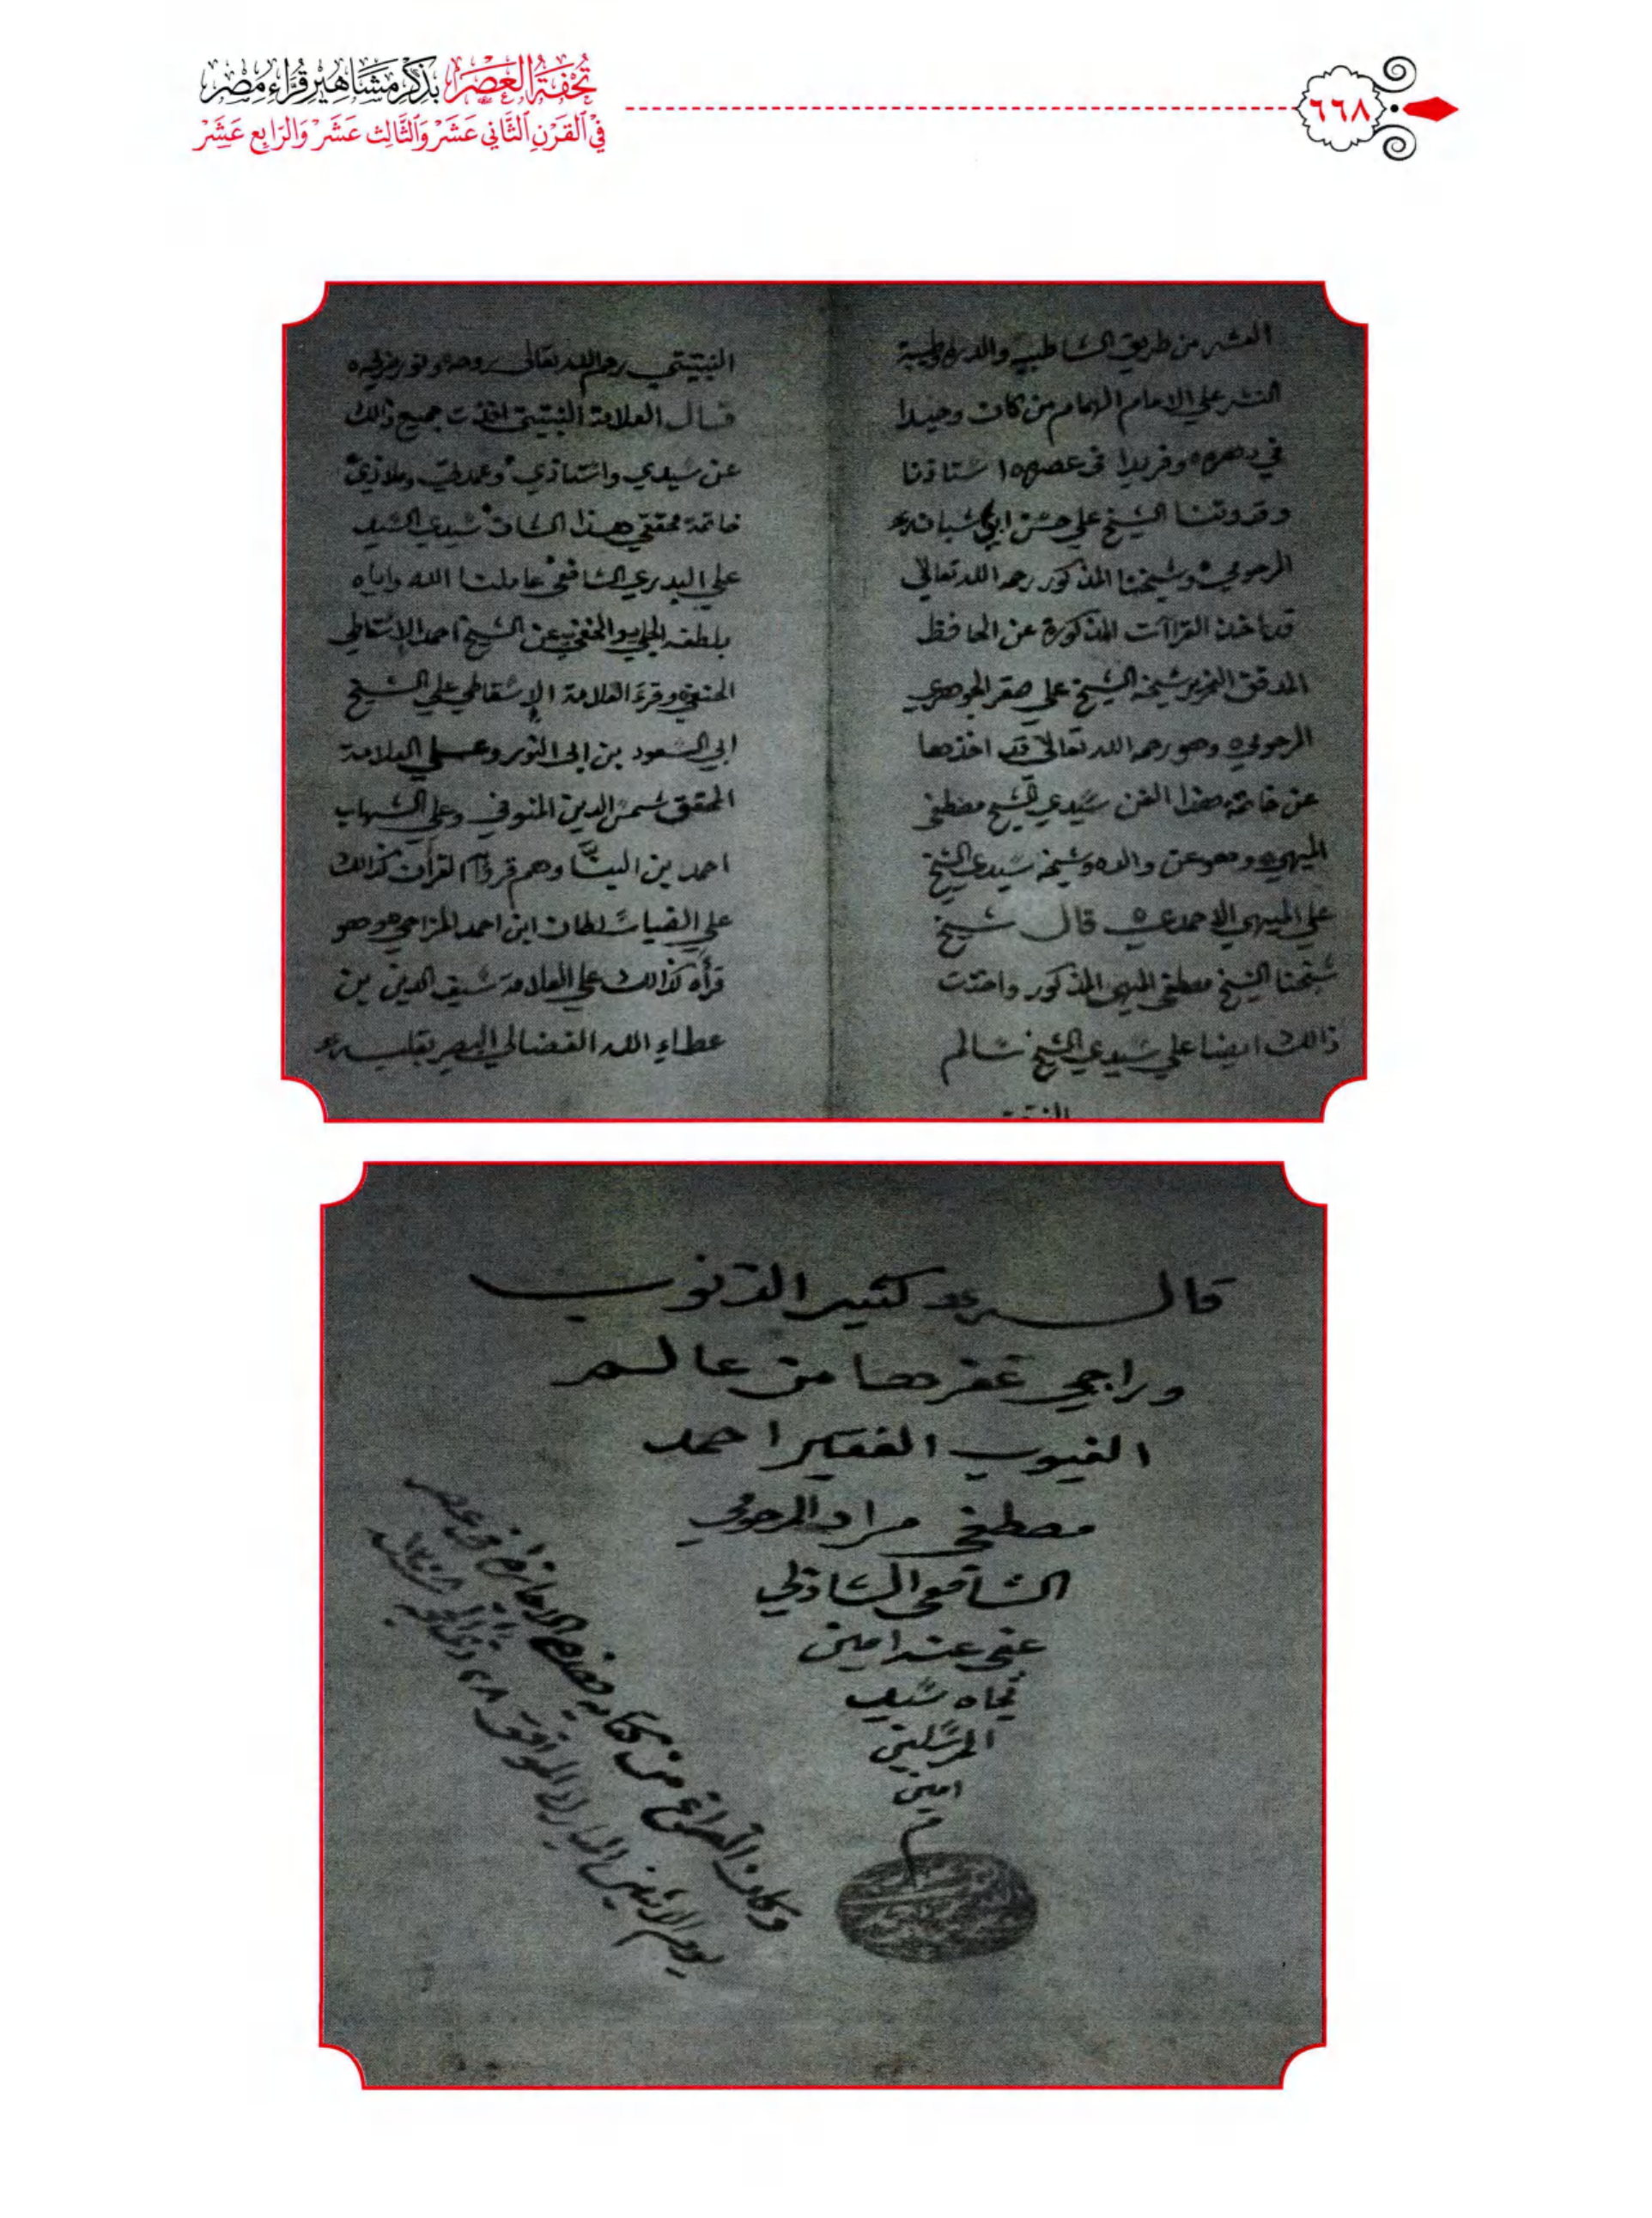 تُحْفَةُ العَصْرِ بِذِكْرِ مَشَاهِيْرِ قُرَّاءِ مِصْرَ
فِي القَرْنِ الثَّانِي عَشَرَ وَالثَّالِث عَشَرَ وَالرَّابِع عَشَرَ
٦٦٨
العشر من طريق الشاطبيه والدره وطيبة
النشر علي الامام الهمام من كان وحيدا
في دهره وفريدا في عصره استاذنا
وقدوتنا الشيخ علي حسن ابي شبانه
المرحومي وشيخنا المذكور رحمه الله تعالي
قد اخذ القراآت المذكورة عن الحافظ
المدقق النحرير شيخه الشيخ علي صقر الجوهري
المرحومي وهو رحمه الله تعالا قد اخذها
عن خاتمة هذا الفن سيدي الشيخ مصطفى
الميهي وهو عن والده وشيخه سيدي الشيخ
علي الميهي الاحمدي قال شيخ
شيخنا الشيخ مصطفي الميهي المذكور واخذت
ذالك ايضا علي سيدي الشيخ سالم
النبتيتي رحم الله تعالى روحه ونور ضريحه
قال العلامة النبتيتي اخذت جميع ذالك
عن سيدي واستاذي وعمدتي وملاذي
خاتمة محققي هذا الشان سيدي السيد
علي البدري الشافعي عاملنا الله واياه
بلطفه الجلي والخفي عن الشيخ احمد الإسقاطي
الحنفي وقرء العلامة الإسقاطي علي الشيخ
ابي السعود بن ابى النور وعلي العلامة
المحقق شمس الدين المنوفي وعلي الشهاب
احمد بن البنَّا وهم قرؤا القرآن كذالك
علي الضيا سلطان ابن احمد المزاحي وهو
قرأه كذالك علي العلامة سيف الدين بن
عطاء الله الفضالي البصير بقلبه
قال كثير الذنوب
وراجي غفرها من عالم
الغيوب الفقير احمد
مصطفى مراد المرحومي
الشافعي الشاذلي
عفي عنه امين
تجاه سيد
المرسلين
امين
م
وكان الفراغ من كتابة هذه الاجازة في عصر
يوم الاثنين المبارك الموافق ٢٨ ذي